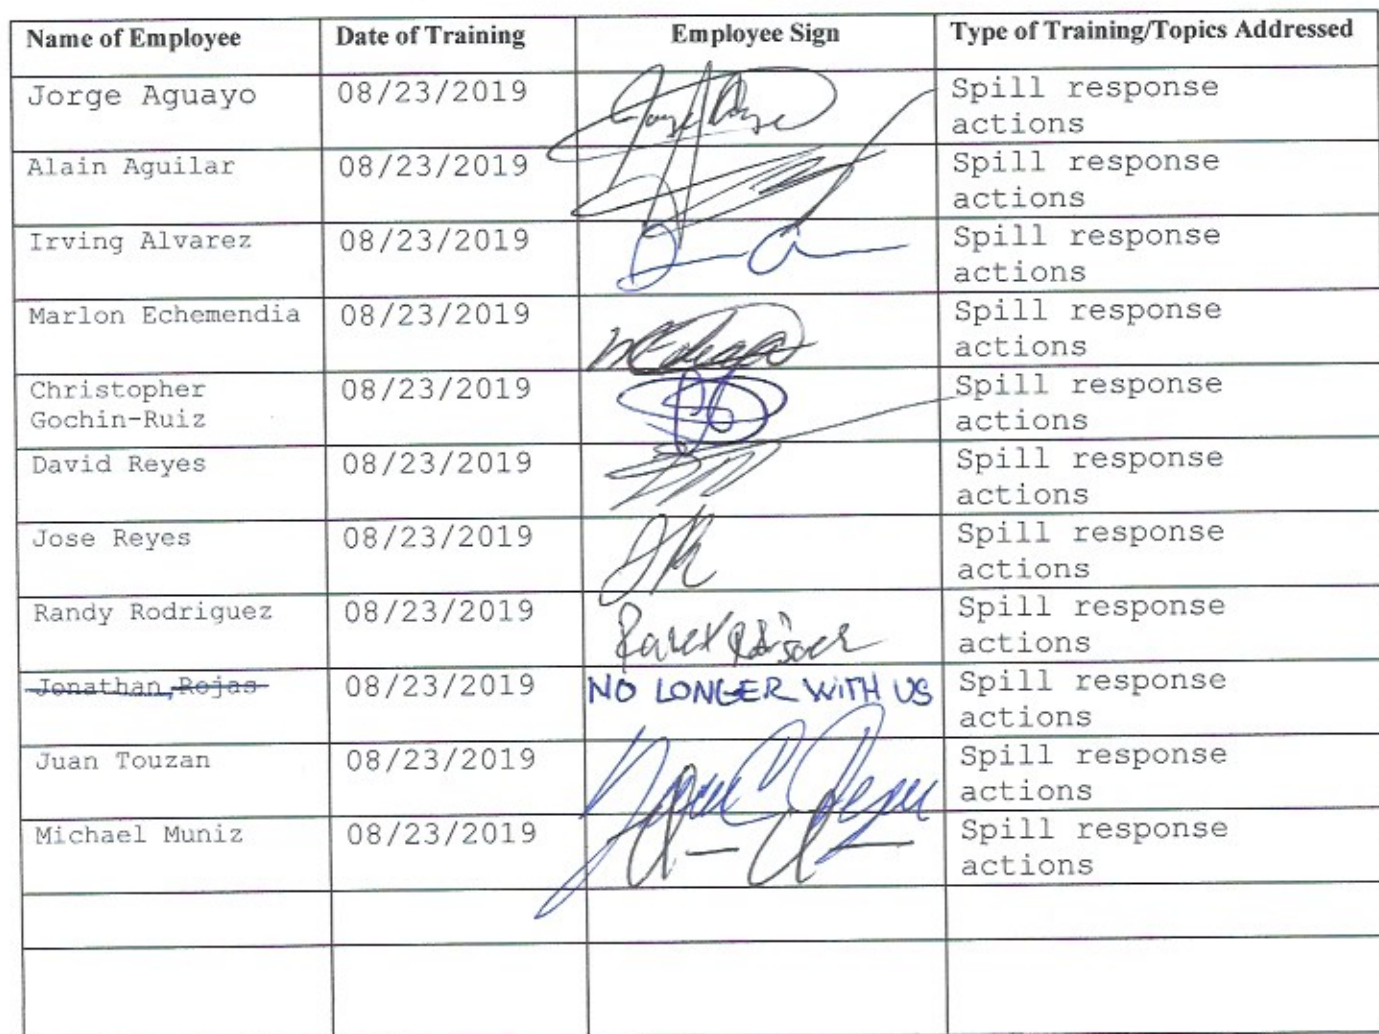 Name of Employee Date of Training Employee Sign Type of Training/Topics Addressed
Jorge Aguayo 08/23/2019 Spill response
actions
Alain Aguilar 08/23/2019 Spill response
actions
Irving Alvarez 08/23/2019 Spill response
actions
Marlon Echemendia 08/23/2019 Spill response
actions
Christopher 08/23/2019 Spill response
Gochin-Ruiz actions
David Reyes 08/23/2019 Spill response
actions
Jose Reyes 08/23/2019 Spill response
actions
Randy Rodriguez 08/23/2019 Spill response
actions
Jonathan, Rojas 08/23/2019 NO LONGER WITH US Spill response
actions
Juan Touzan 08/23/2019 Spill response
actions
Michael Muniz 08/23/2019 Spill response
actions